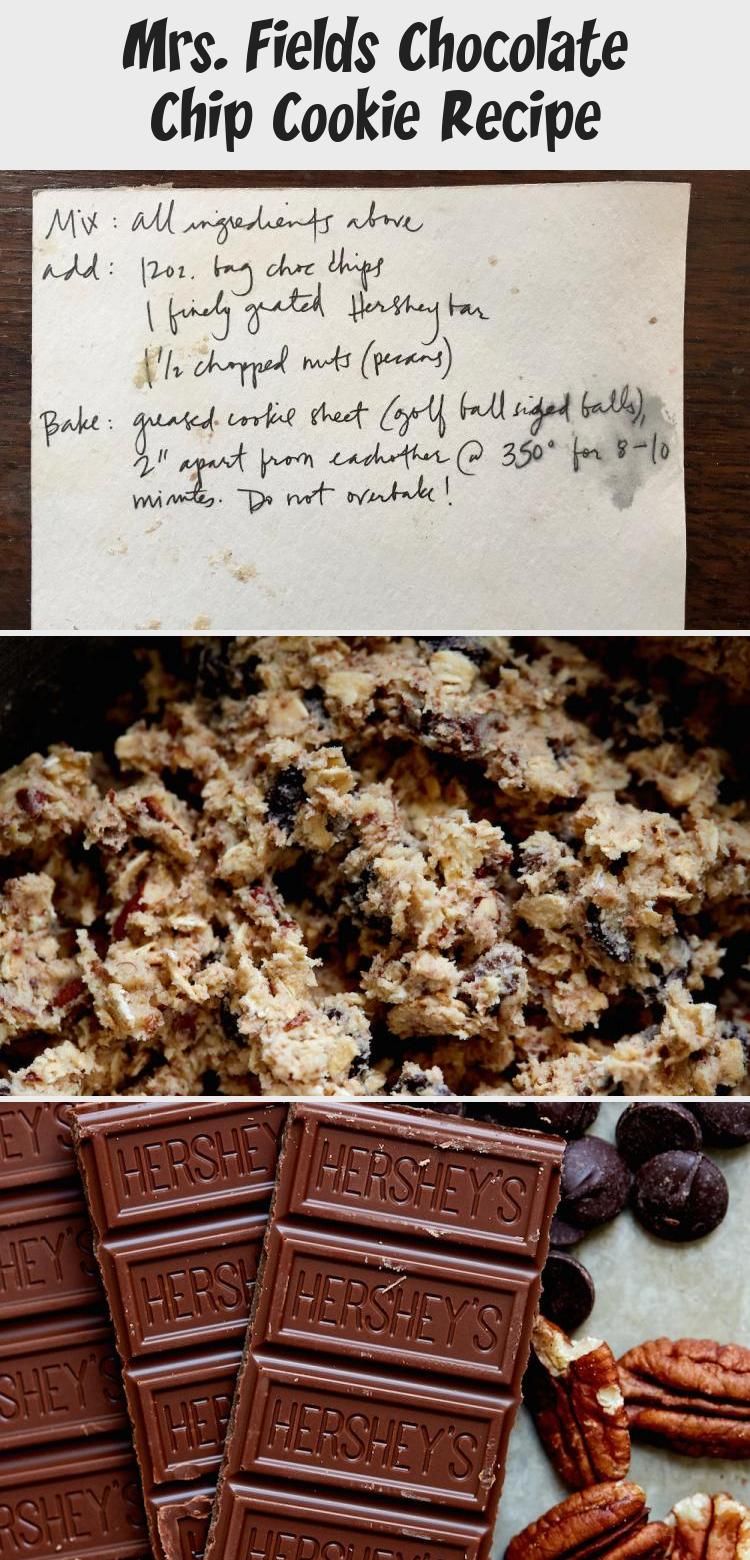 Mrs. Fields Chocolate
Chip Cookie Recipe
Mix: all ingredients above
add: 12oz. bag choc chips
1 finely grated Hershey bar
1 1/2 chopped nuts (pecans)
Bake: greased cookie sheet (golf ball sized balls),
2" apart from eachother @ 350° for 8-10
minutes. Do not overbake!
EY'S
HERSHEY
HERSHEY'S
HEY'S
HERSH
HERSHEY'S
SHEY'S
HER
HERSHEY'S
RSHEY'S
HERSHEY'S